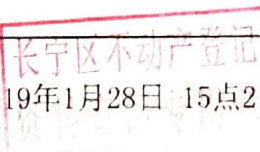 长宁区不动产登记
19年1月28日 15点2